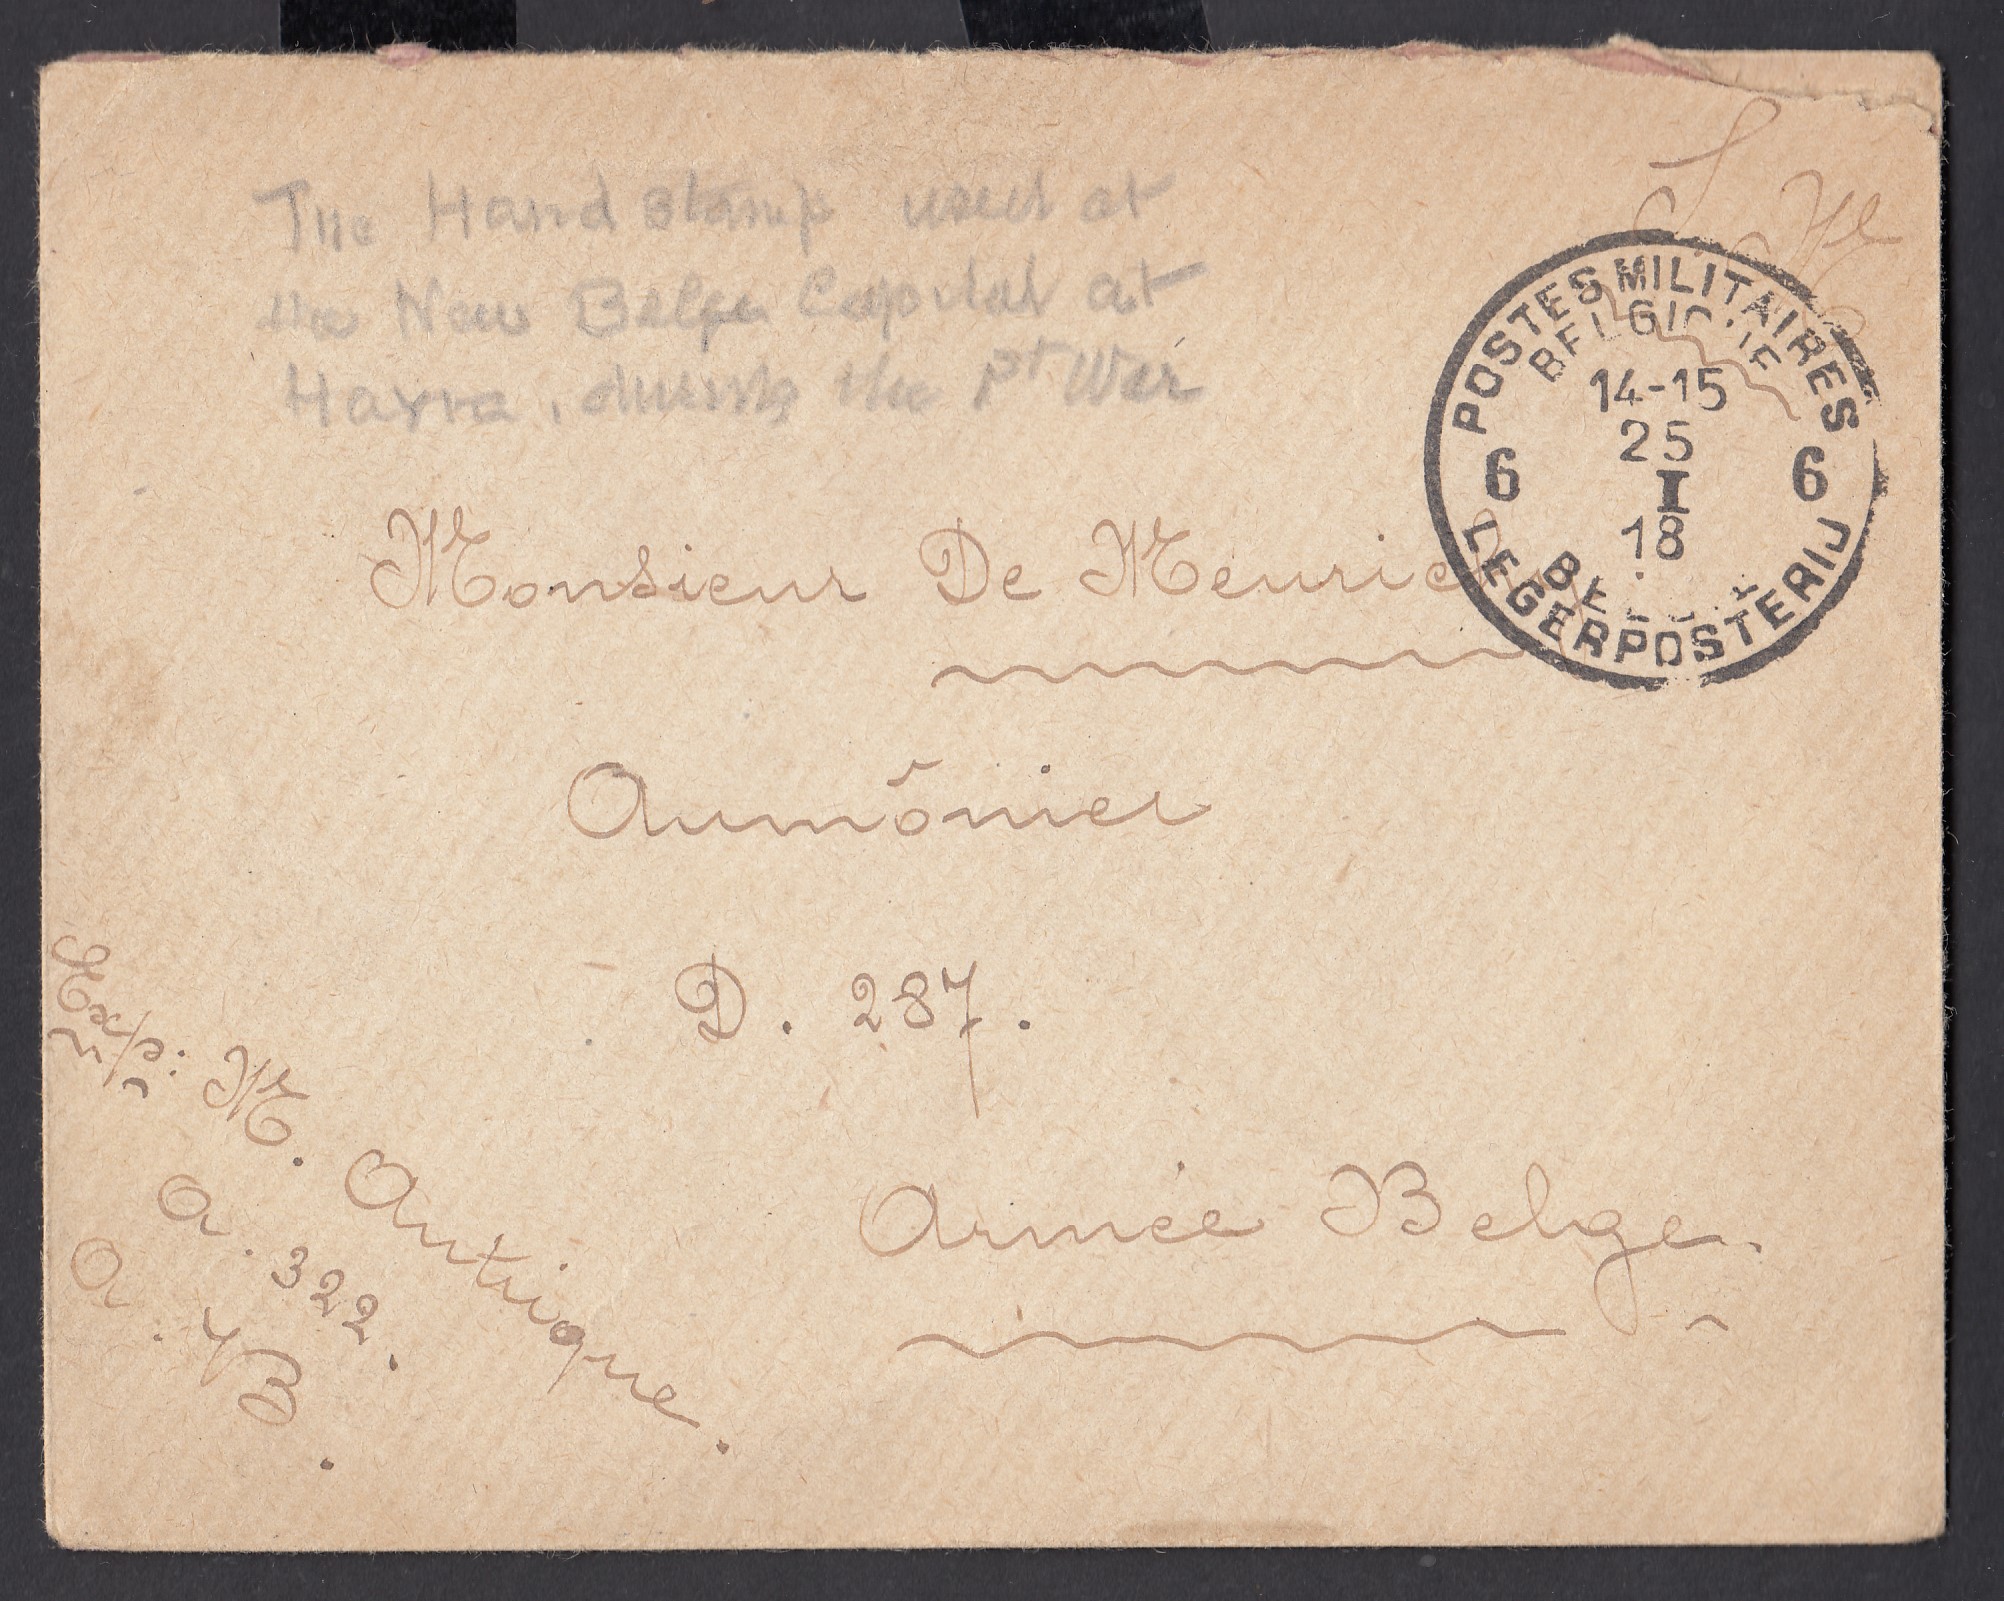 The Hand stamp used at
the New Belge Capital at
Havre, during the 1st War
S. M.
POSTES MILITAIRES
BELGIQUE
14-15
25
I
18
6 6
LEGERPOSTERIJ
Monsieur De Meurie
Aumônier
D. 287.
Armée Belge.
Exp: M. Antique.
A. 322.
A. B.